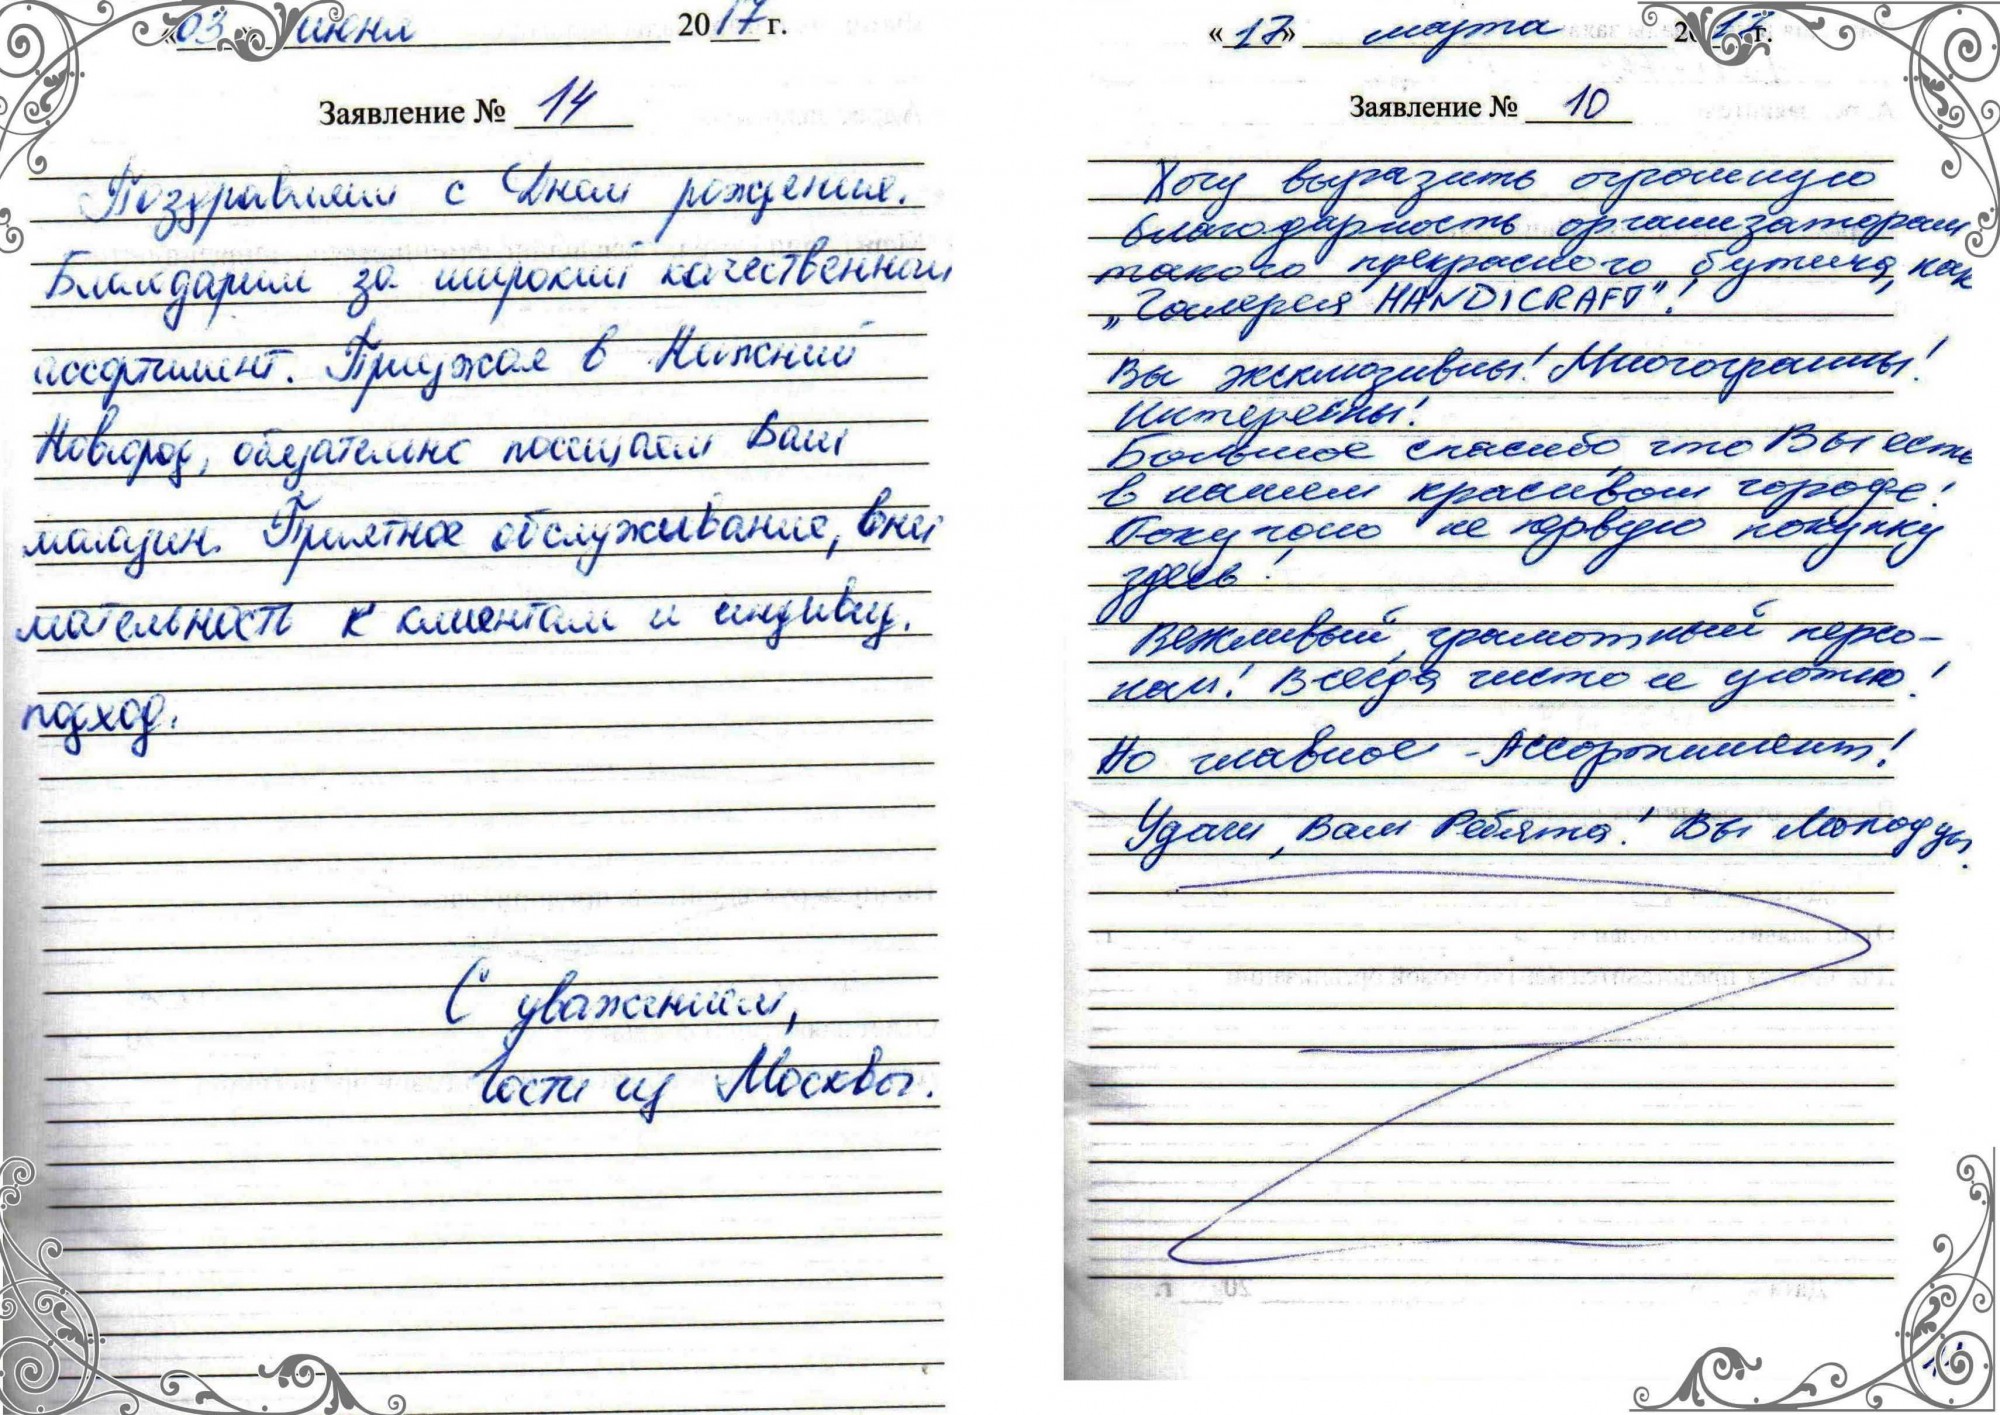 «03» июня 2017 г.
Заявление № 14
Поздравляем с Днем рождения.
Благодарим за широкий качественный
ассортимент. Приезжая в Нижний
Новгород, обязательно посещаем Ваш
магазин. Приятное обслуживание, вни
мательность к клиентам и индивид.
подход.
С уважением,
Гости из Москвы.
«17» марта 2017 г.
Заявление № 10
Хочу выразить огромную
благодарность организаторам
такого прекрасного бутика, как
„Галерея HANDICRAFT"!
Вы эксклюзивны! Многогранны!
Интересны!
Большое спасибо, что Вы есть
в нашем красивом городе!
Покупаю не первую покупку
здесь!
Вежливый, грамотный персо-
нал! Всегда чисто и уютно!
Но главное - Ассортимент!
Удачи, Вам Ребята! Вы Молодцы.